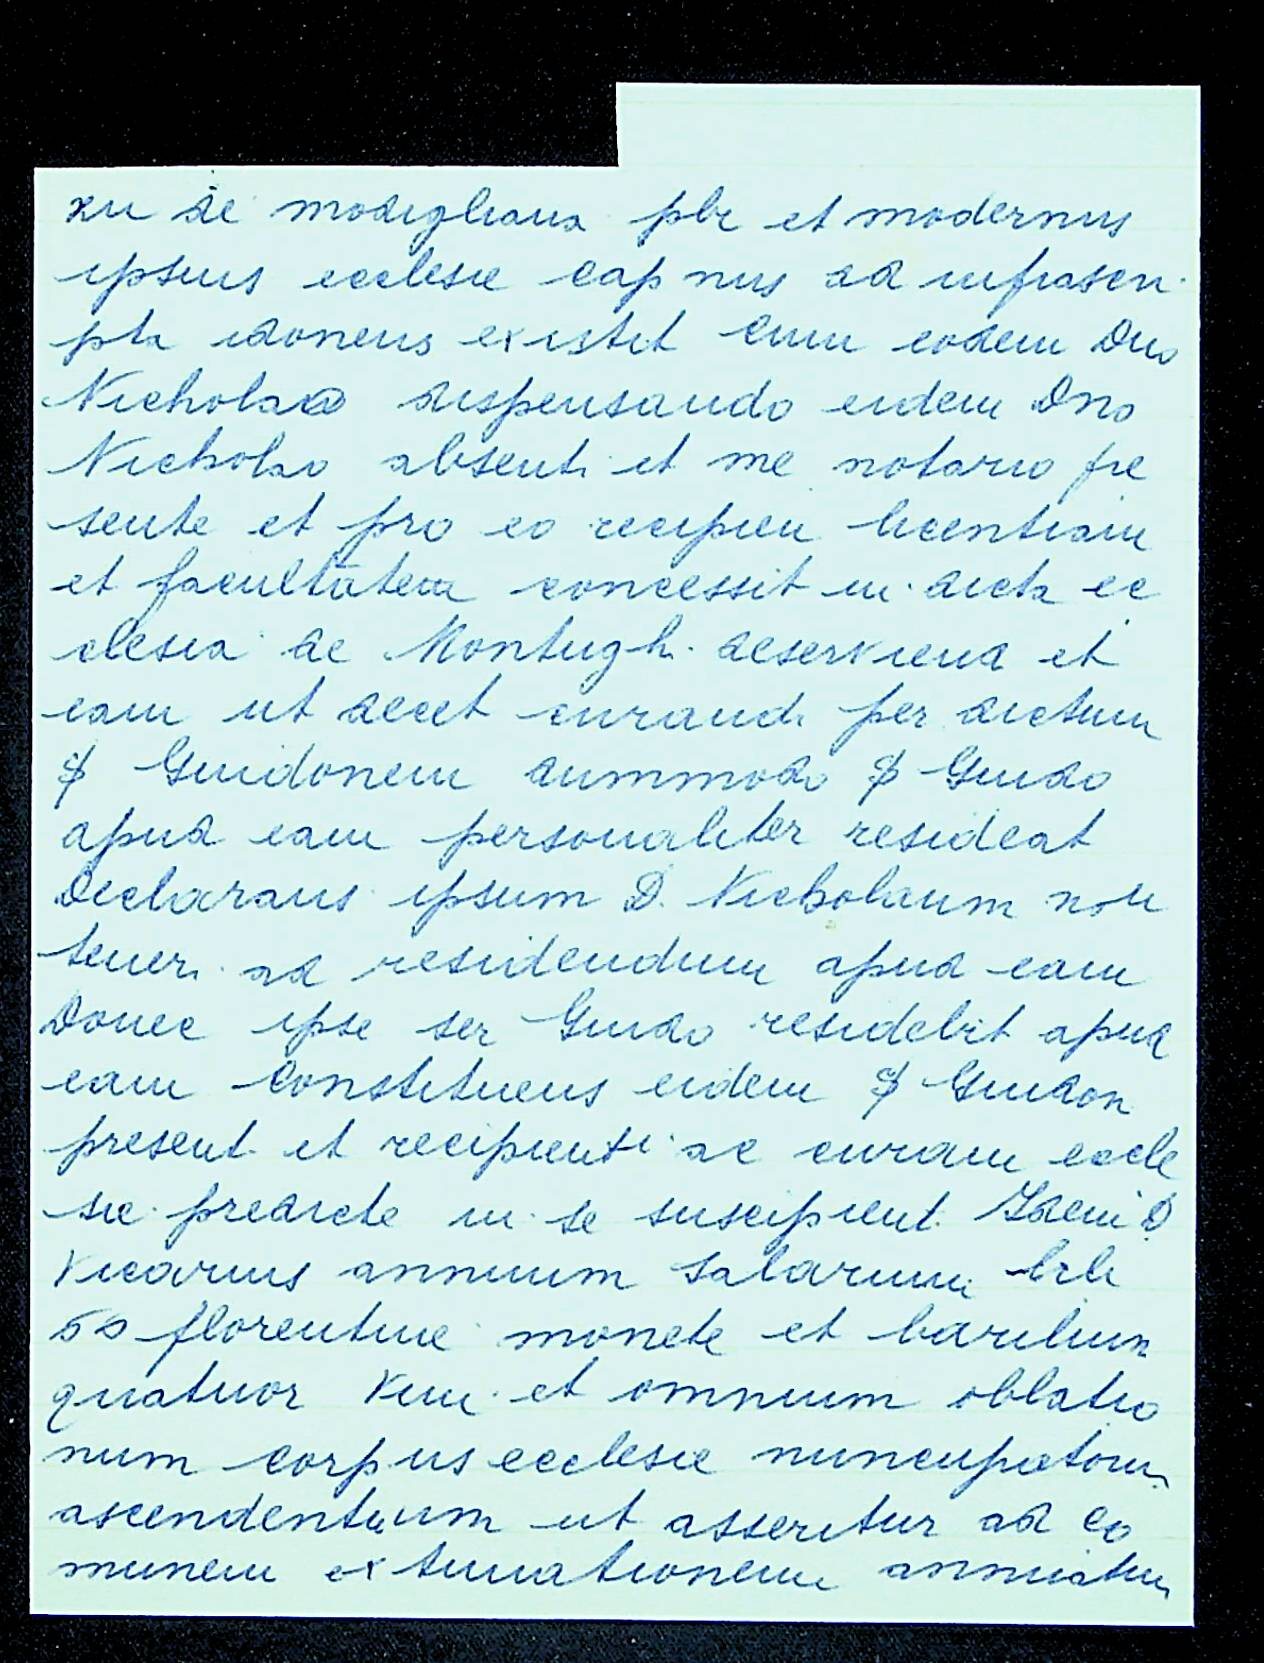 xii de modigliana pbr et modernus
ipsius ecclesie cap nus ad infrascri
pta idoneus existit cum eodem Dno
Nicholao dispensando eidem Dno
Nicholao absenti et me notario pre
sente et pro eo recipien licentiam
et facultatem concessit in dicta ec
clesia de Montugh. deserviend et
eam ut decet curand. per dictum
Guidonem dummodo Guido
apud eam personaliter resideat
Declarans ipsum D. Nicholaum non
teneri ad residendum apud eam
Donec ipse ser Guido residebit apud
eam Constituens eidem Guidon
present. et recipienti ac curam eccle
sie predicte in se suscipient. Idem D
Vicarius annuum salarium lib
50 florentine monete et barilium
quatuor vini et omnium oblatio
num corpus ecclesie nuncupatorum
ascendentium ut asseritur ad co
munem extimationem annuatim